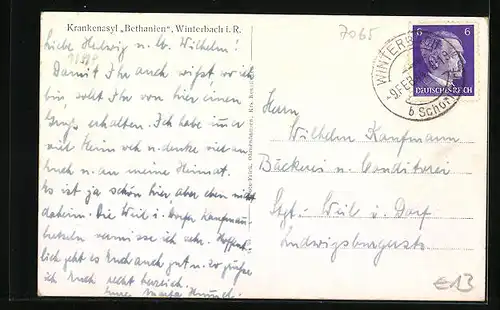 Krankenasyl „Bethanien“, Winterbach i. R.
7065
Liebe Hedwig u. lb. Wilhelm!
Damit Ihr auch wißt wo ich
bin, sollt Ihr von hier einen
Gruß erhalten. Ich habe immer
viel Heimweh u. denke viel an
Euch u. an meine Heimat.
Es ist ja schön hier, aber eben nicht
daheim. Die Weil i. Dorfer
vermisse ich sehr. Hoffent-
lich geht es Euch auch gut u. so grüße
ich Euch recht herzlich
Eure Marta
WINTERB
9.FEB
b Schorn
6 6
DEUTSCHES REICH
Herrn
Wilhelm Kaufmann
Bäckerei u. Conditorei
Stgt.- Weil i. Dorf
Ludwigsburgerstr.
€13